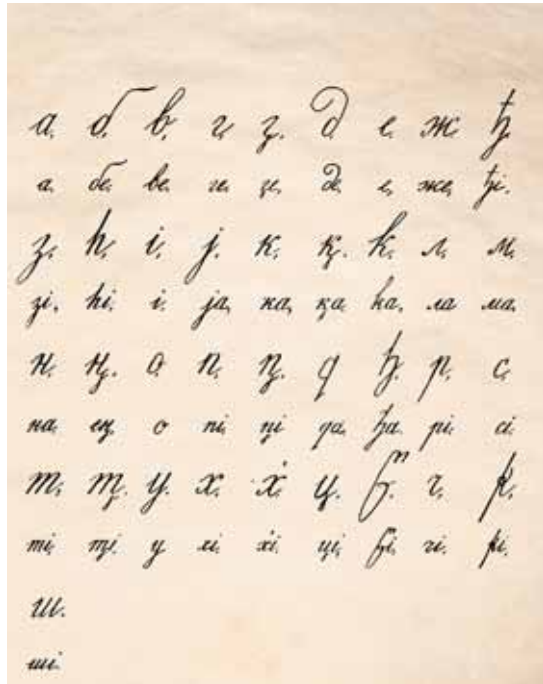 а. б. в. г. д. е. ж. ђ.
а. бе. ве. ге. де. е. же. ђі.
з. һ. і. ј. к. қ. k. л. м.
зі. һі. і. ја. ка. қа. kа. ла. ма.
н. ң. о. п. ԥ. q. р. с.
на. ең. о. пі. ԥі. qа. рі. сі.
т. ҭ. у. х. х̇. ц. ч.
ті. ҭі. у. хі. х̇і. ці. чі.
ш.
ші.